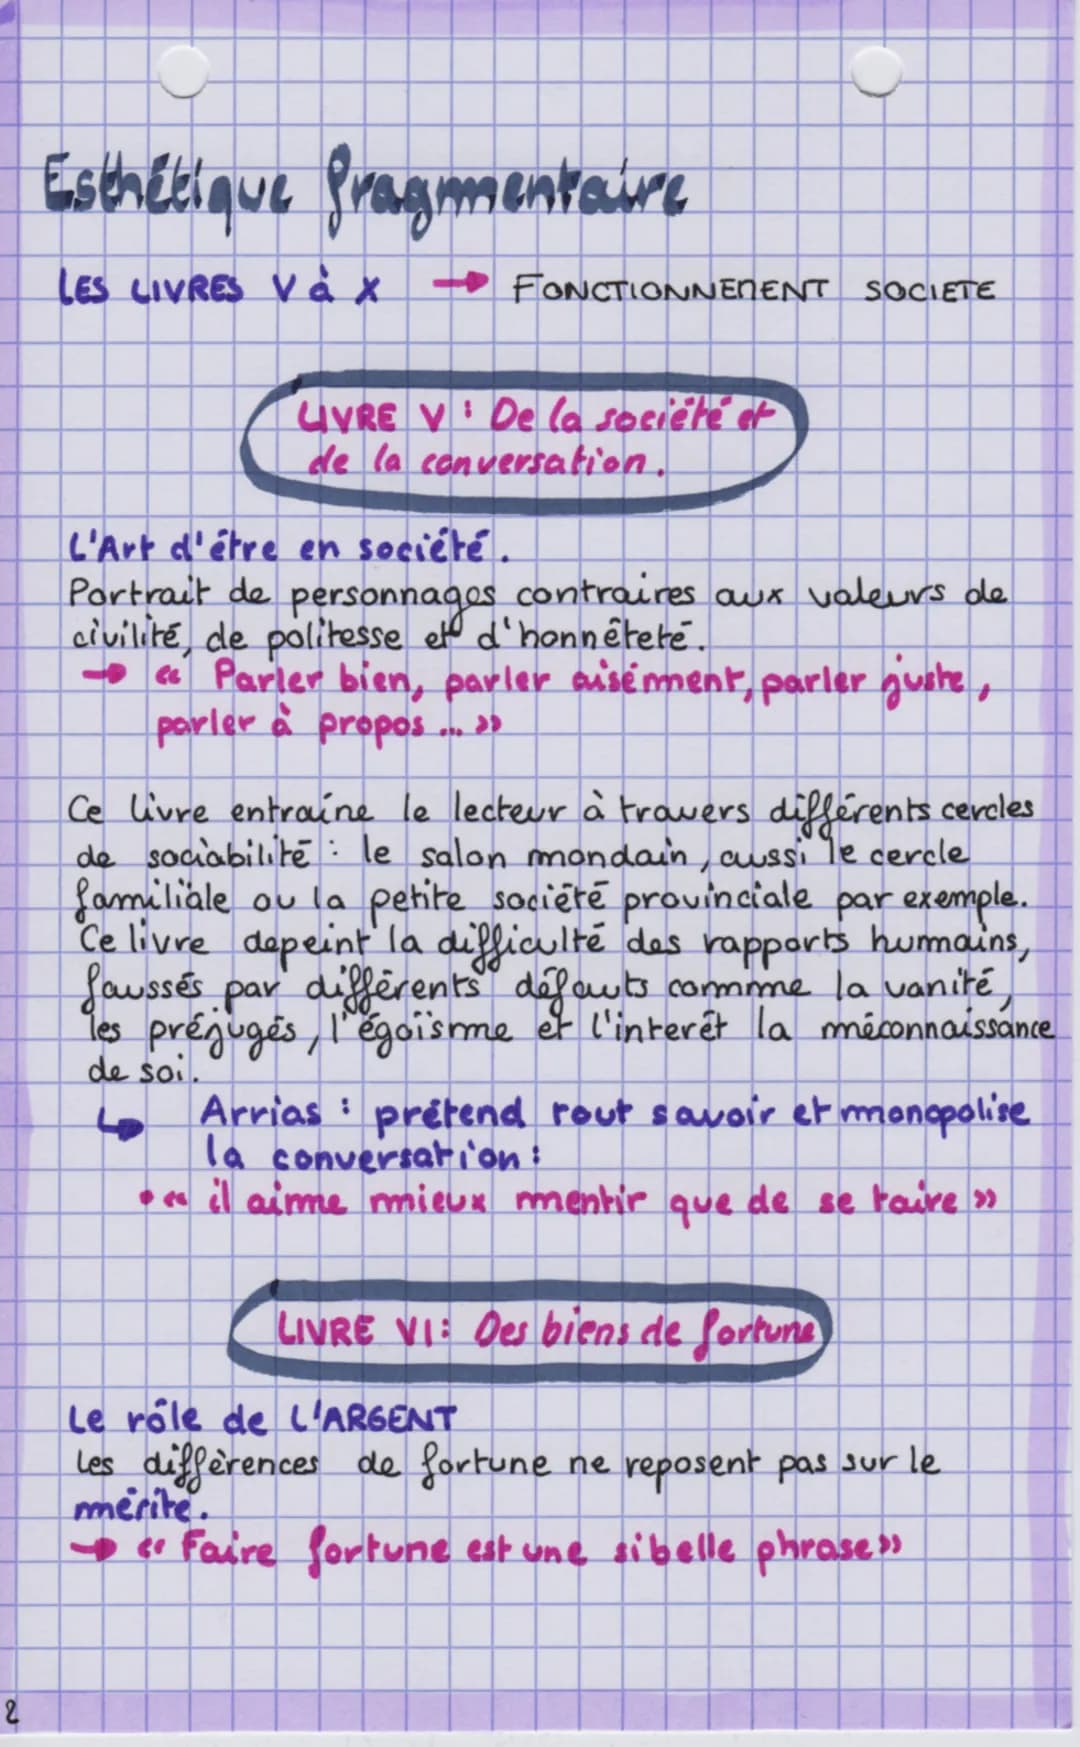 Esthétique fragmentaire
LES LIVRES V à X → FONCTIONNEMENT SOCIETE
LIVRE V : De la société et
de la conversation.
L'Art d'être en société.
Portrait de personnages contraires aux valeurs de
civilité, de politesse et d'honnêteté.
→ « Parler bien, parler aisément, parler juste,
parler à propos ... »
Ce livre entraîne le lecteur à travers différents cercles
de sociabilité : le salon mondain, aussi le cercle
familiale ou la petite société provinciale par exemple.
Ce livre depeint la difficulté des rapports humains,
faussés par différents défauts comme la vanité,
les préjugés, l'égoïsme et l'interêt la méconnaissance
de soi.
↳ Arrias : prétend tout savoir et monopolise
la conversation :
• « il aime mieux mentir que de se taire »
LIVRE VI : Des biens de fortune
Le rôle de L'ARGENT
Les différences de fortune ne reposent pas sur le
mérite.
→ « Faire fortune est une si belle phrase »
2